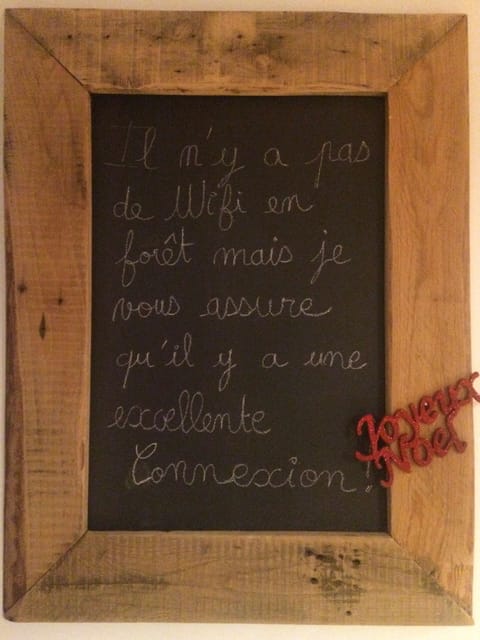 Il n'y a pas
de Wifi en
forêt mais je
vous assure
qu'il y a une
excellente
Connexion!
Joyeux
Noel